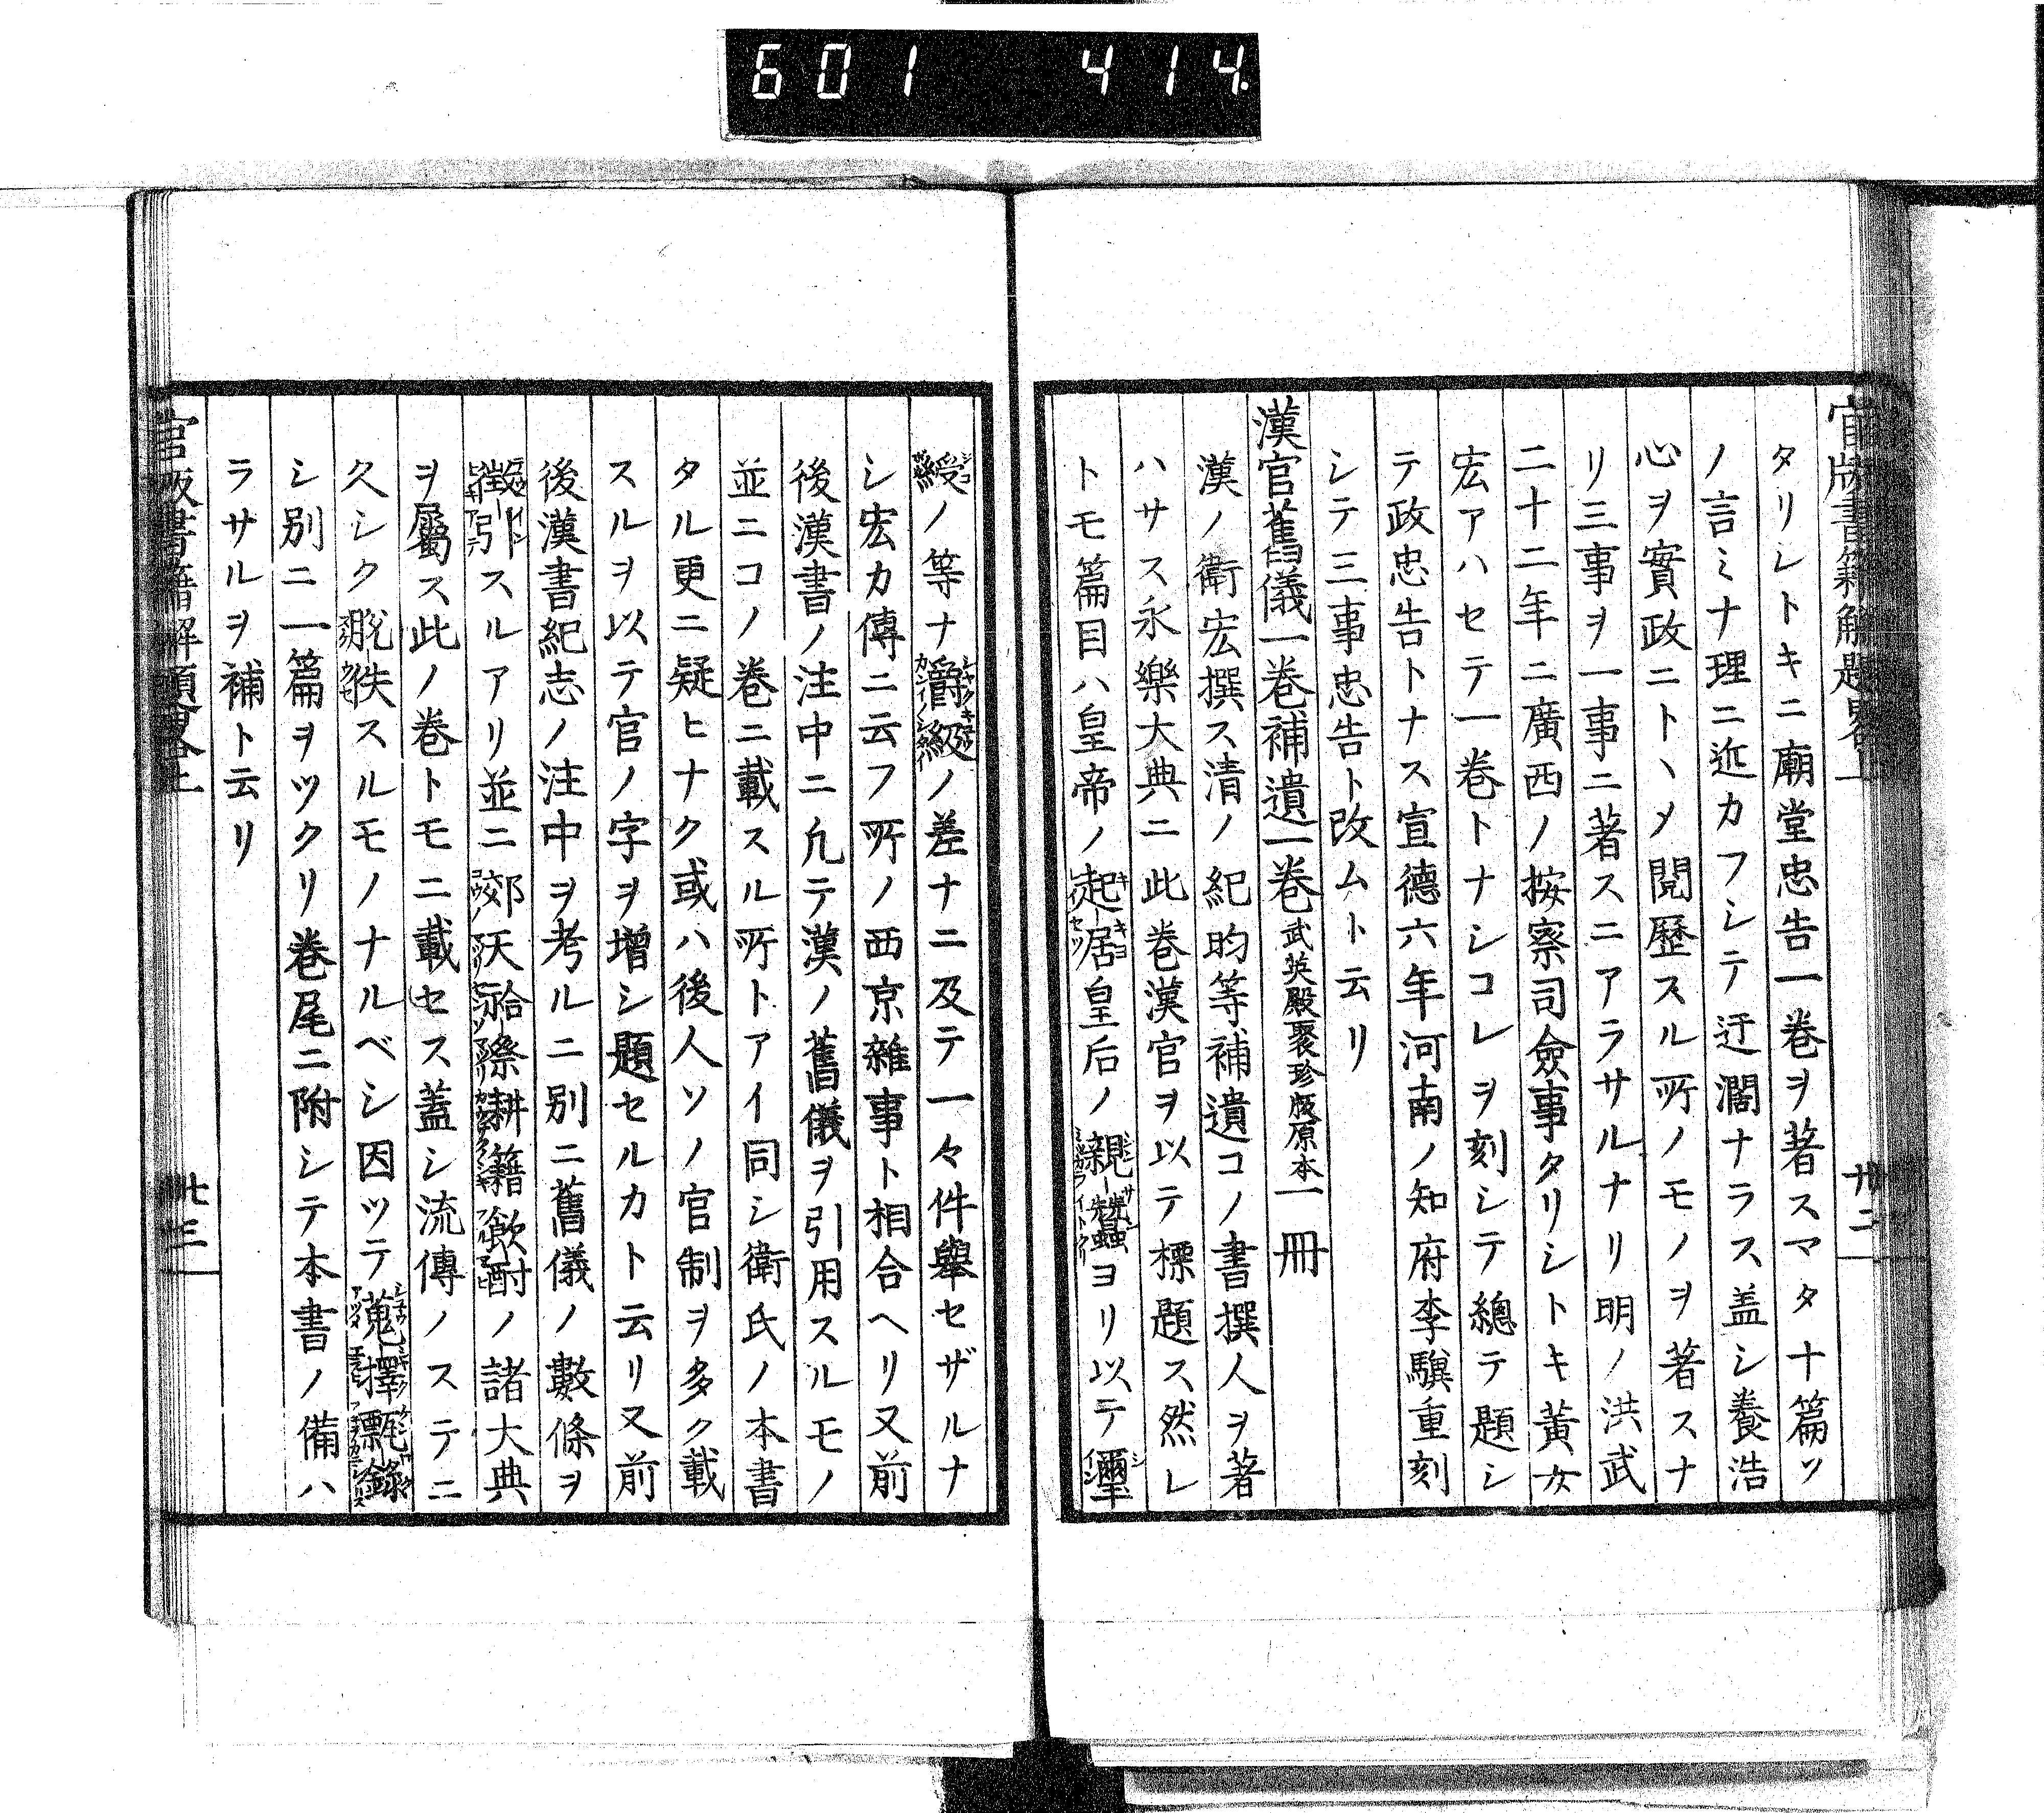 601 414.
官版書籍解題畧上
タリシトキニ廟堂忠告一巻ヲ著スマタ十篇ソ
ノ言ミナ理ニ近カフシテ迂濶ナラス盖シ養浩
心ヲ實政ニトヽメ閲歷スル所ノモノヲ著スナ
リ三事ヲ一事ニ著スニアラサルナリ明ノ洪武
二十二年ニ廣西ノ按察司僉事タリシトキ黃女
宏アハセテ一巻トナシコレヲ刻シテ總テ題シ
テ政忠告トナス宣德六年河南ノ知府李驥重刻
シテ三事忠告ト改ムト云リ
漢官舊儀一巻補遺一巻武英殿聚珍版原本一冊
漢ノ衛宏撰ス清ノ紀昀等補遺コノ書撰人ヲ著
ハサス永樂大典ニ此巻漢官ヲ以テ標題ス然レ
トモ篇目ハ皇帝ノ起居皇后ノ親蠶ヨリ以テ璽
綬ノ等ナ爵級ノ差ナニ及テ一々件舉セザルナ
シ宏カ傳ニ云フ所ノ西京雜事ト相合ヘリ又前
後漢書ノ注中ニ凢テ漢ノ舊儀ヲ引用スルモノ
並ニコノ巻ニ載スル所トアイ同シ衛氏ノ本書
タル更ニ疑ヒナク或ハ後人ソノ官制ヲ多ク載
スルヲ以テ官ノ字ヲ增シ題セルカト云リ又前
後漢書紀志ノ注中ヲ考ルニ別ニ舊儀ノ數條ヲ
徴引スルアリ並ニ郊天祫祭耕籍飲酎ノ諸大典
ヲ屬ス此ノ巻トモニ載セス蓋シ流傳ノステニ
久シク脫佚スルモノナルベシ因ツテ蒐擇甄錄
シ別ニ一篇ヲツクリ巻尾ニ附シテ本書ノ備ハ
ラサルヲ補ト云リ
官版書籍解題畧上